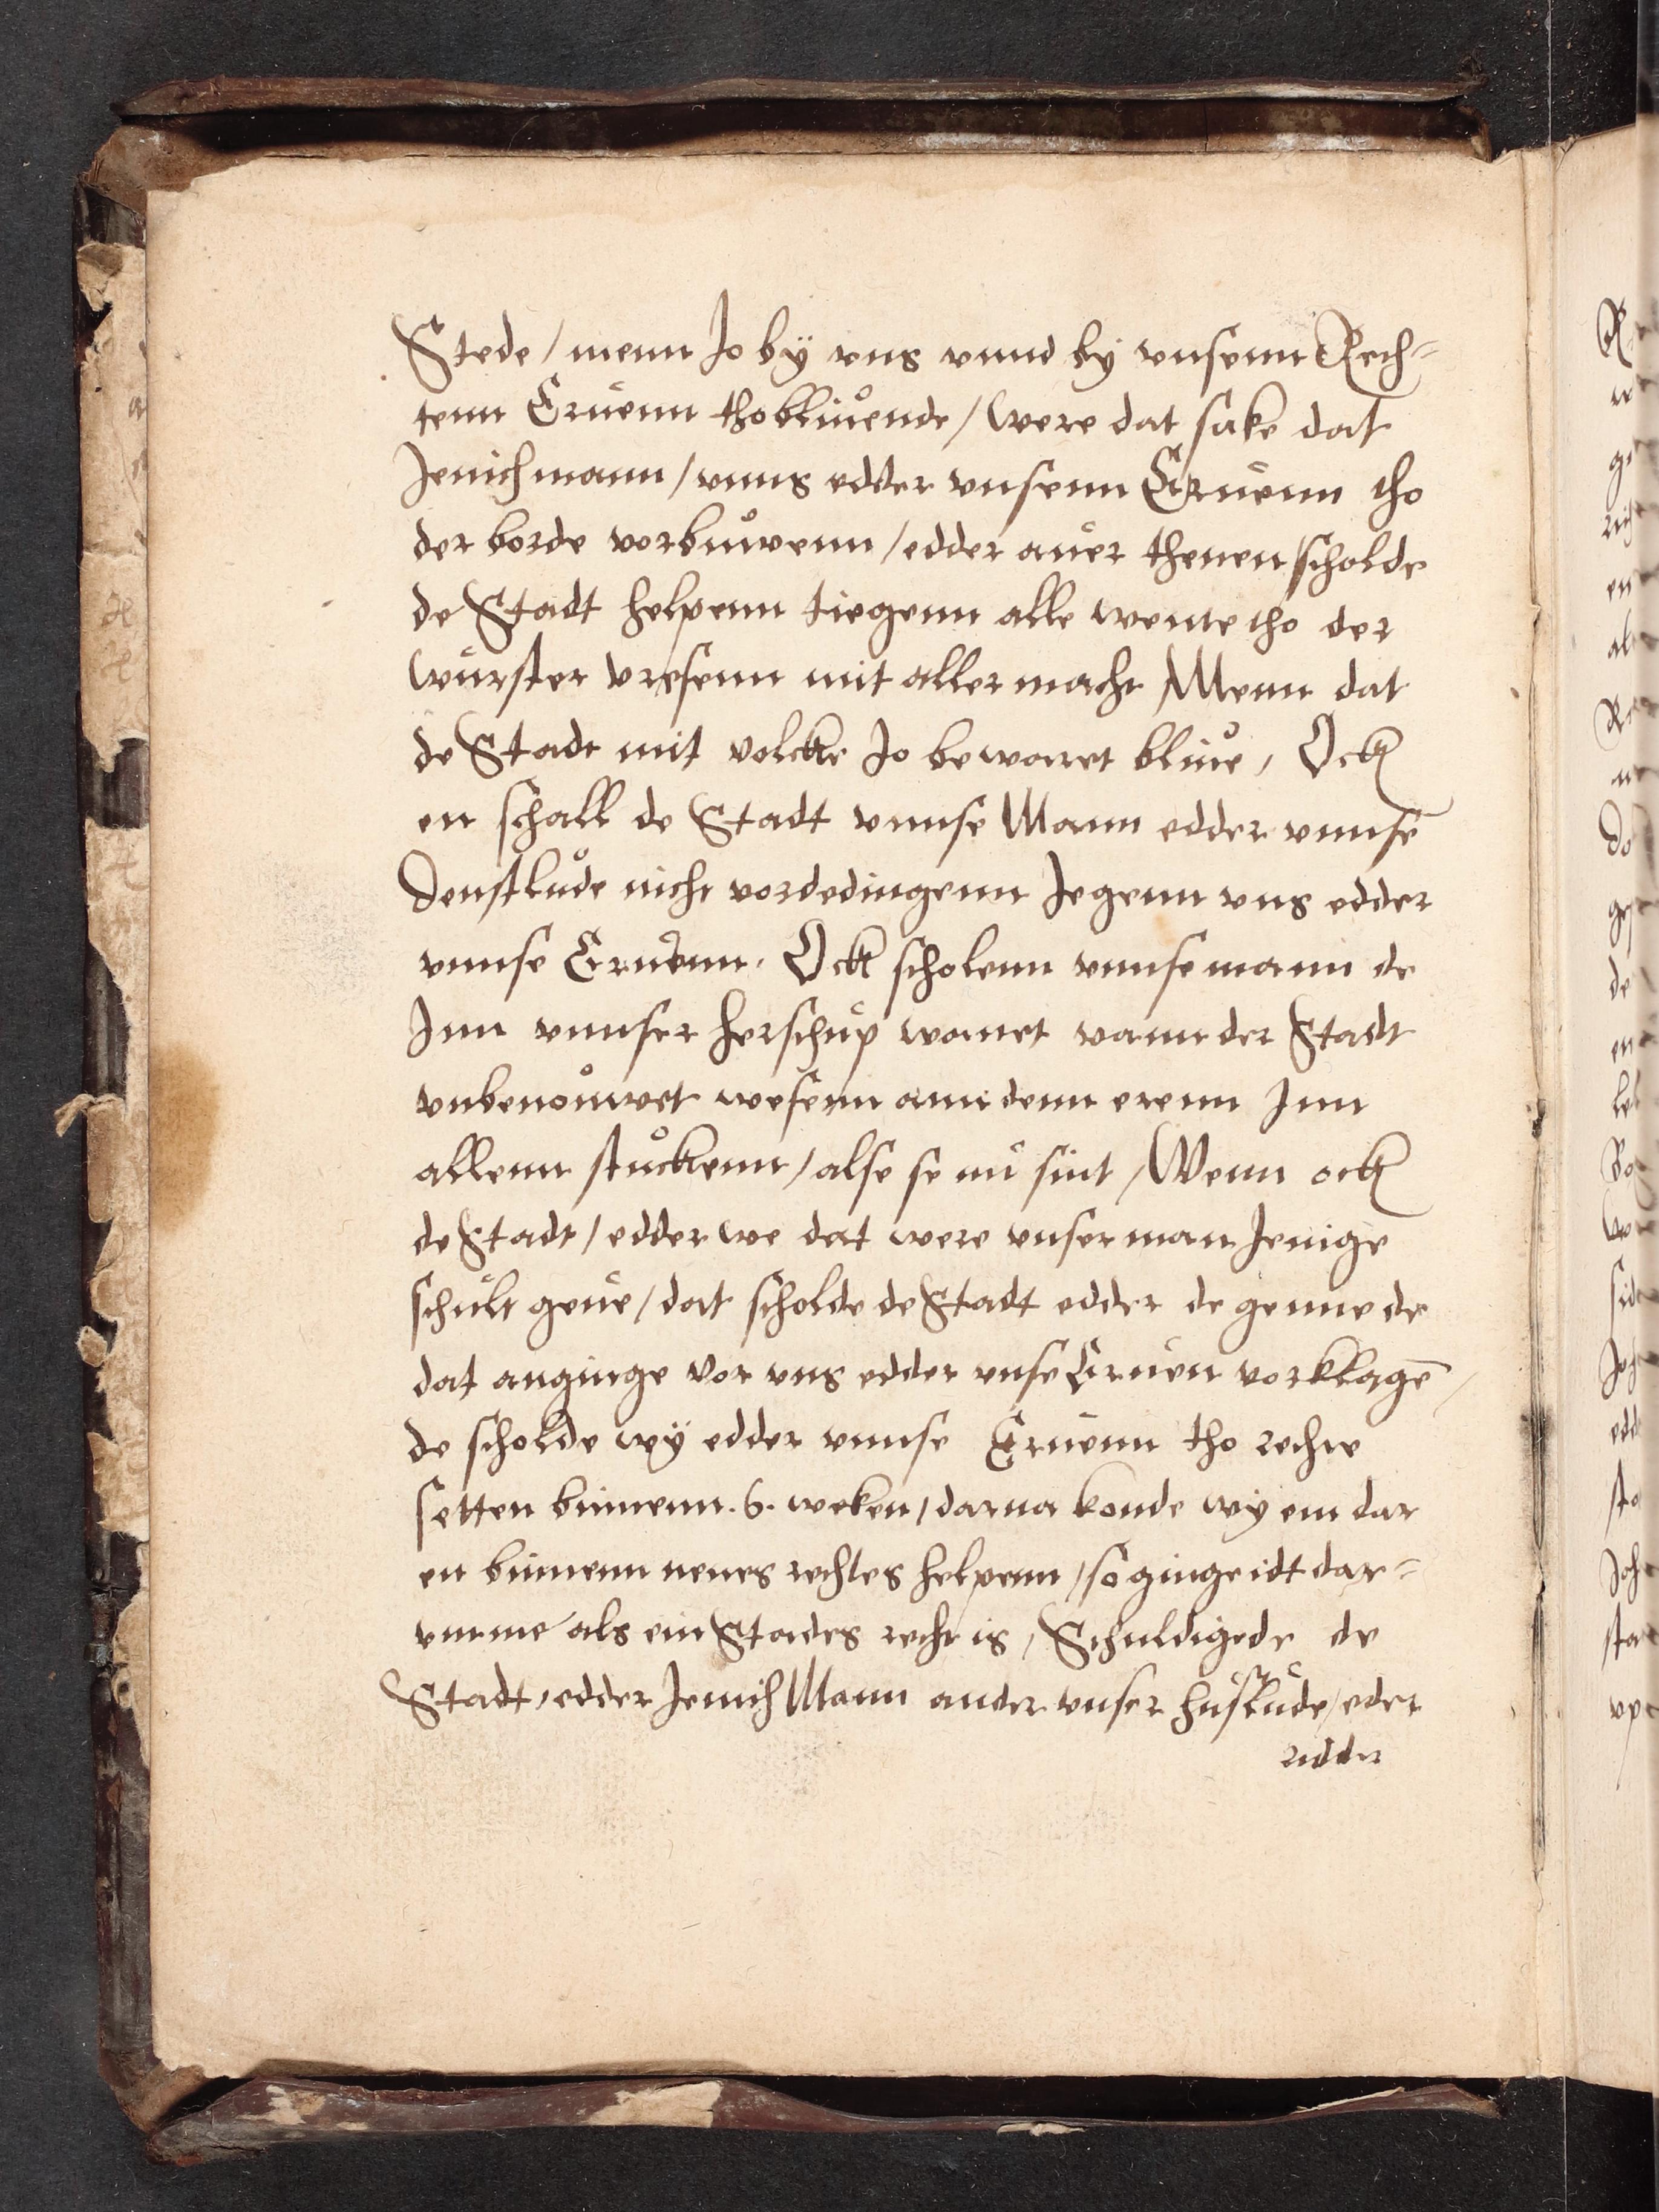 Stede / menn Jo bÿ vns vnnd by vnsenn Rech-
tenn Eruenn thobliuende / were dat sake dat
Jenich mann / vnns edder vnsenn Eruenn tho
der borde vorbuwenn / edder auer thenen / scholde
de Stadt helpenn tiegenn alle wente tho der
wurster vresenn mit aller macht / Menn dat
de Stadt mit volcke Jo bewaret bliue / Ock
en schall de Stadt vnnse Mann edder vnnse
Denstlude nicht vordedingenn Jegenn vns edder
vnnse Eruenn. Ock scholenn vnnse mann de
Jnn vnnser herschup wonet vann der Stadt
vnbenouwet wesenn ann denn erenn Jnn
allenn stuckenn / alse se nu sint / Wenn ock
de Stadt / edder we dat were vnser man Jenige
schult geue / dat scholde de Stadt edder de genne de
dat anginge vor vns edder vnse Eruen vorklagē /
de scholde wÿ edder vnnse Eruenn tho rechte
setten binnenn .6. weken / darna konde wÿ em dar
en binnenn nenes rechtes helpenn / so ginge idt dar-
vmme als ein Stades recht is / Schuldigede de
Stadt / edder Jennich Mann ander vnser huslude / eder
ridder